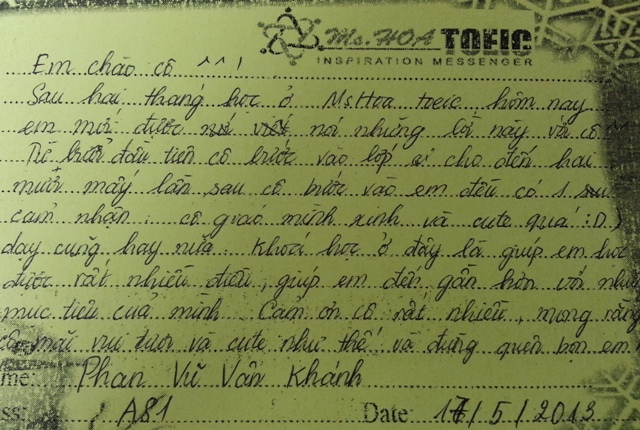 Ms. HOA TOEIC
INSPIRATION MESSENGER
Em chào cô ^^!
Sau hai tháng học ở Ms.Hoa toeic hôm nay
em mới được nói viết nói những lời này với cô
Từ buổi đầu tiên cô bước vào lớp cho đến hai
mươi mấy lần sau cô bước vào em đều có 1
cảm nhận: cô giáo mình xinh và cute quá :D)
dạy cũng hay nữa. Khoá học ở đây là giúp em học
được rất nhiều điều, giúp em đến gần hơn với
mục tiêu của mình. Cảm ơn cô rất nhiều, mong rằng
cô mãi vui tươi và cute như thế và đừng quên bọn em
me: Phan Vũ Vân Khánh
ss: A81 Date 17/5/2013